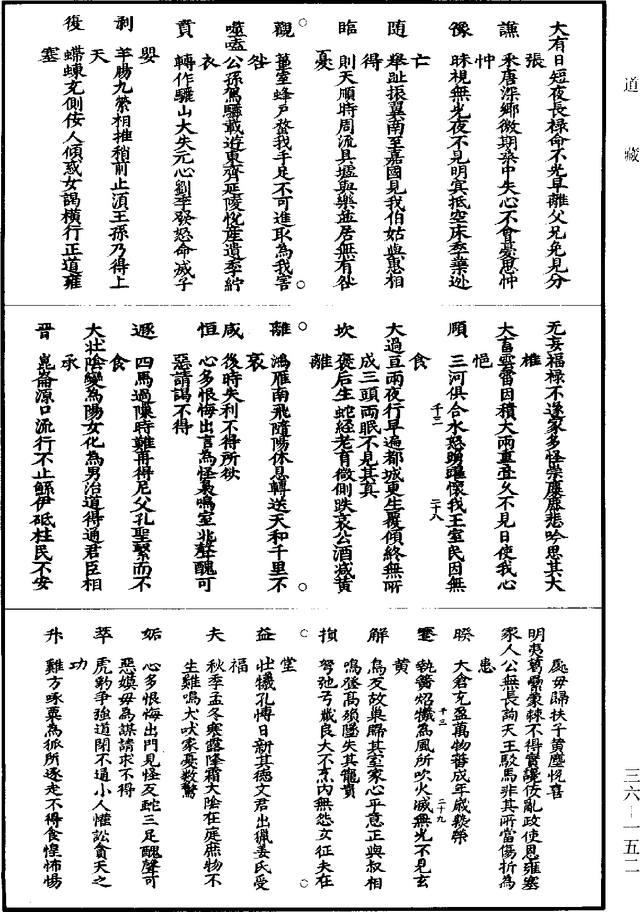 道藏
大有日短夜長祿命不光早離父兄免見分
張
謙 釆唐深鄉微期桑中失心不會憂思忡
忡
豫 昧視無光夜不見明冥抵空床季藥迯
亡
随 舉趾振翼南至嘉國見我伯姑與惠相
得
臨 則天順時周流其墟與樂並居無有咎
憂
觀 蠆室蜂戶螫我手足不可進取為我害
咎
噬嗑公孫駕驪載遊東齊延陵悅產遺季紵
衣
賁 轉作驪山大失元心劉季發怒命滅子
嬰
剥 羊腸九縈相推稍前止須王孫乃得上
天
復 蝃蝀充側佞人傾惑女謁橫行正道雍
塞
无妄福祿不逢家多怪祟麋鹿悲吟思其大
雄
大畜雲雷因積大雨重疊久不見日使我心
悒
頤 三河俱合水怒踴躍壞我王室民困無
食
千二
二十八
大過豆雨夜行早遍都城更生覆傾終無所
成三頭兩眠不見其真
坎 褒后生蛇經老育微側跌哀公酒滅黃
離
離 鴻雁南飛隨陽休息轉送天和千里不
衰
咸 後時失利不得所欲
恒 心多恨悔出言為怪梟鳴室北聲醜可
惡請謁不得
遯 四馬過隙時難再得尼父孔聖繫而不
食
大壯陰變為陽女化為男治道得通君臣相
承
晉 崑崙源口流行不止龢伊砥柱民不安
處母歸扶子黃麈悅喜
明夷葛藟蒙棘不得實讒佞亂政使恩雍塞
家人公無長詢天王駁馬非其所當傷折為
患
睽 大倉充盈萬物蕃成年歲熟榮
千三
二十九
蹇 執簧炤犧為風所吹火滅無光不見玄
黃
解 鳥反故巢歸其室家心乎意正與叔相
鳴登高殞墜失其寵貴
損 弩弛弓藏良犬不烹內無怨女征夫在
堂
益 壯犧孔博日新其德文君出獵姜氏受
福
夬 秋季孟冬寒露隕霜大陰在庭庶物不
生雞鳴犬吠家憂數驚
姤 心多恨悔出門見怪反蛇三足醜聲可
惡嫫母為媒請求不得
萃 虎豹爭強道閉不通小人讙訟貪天之
功
升 雞方啄粟為狐所逐走不得食惶怖惕
三六-一五二